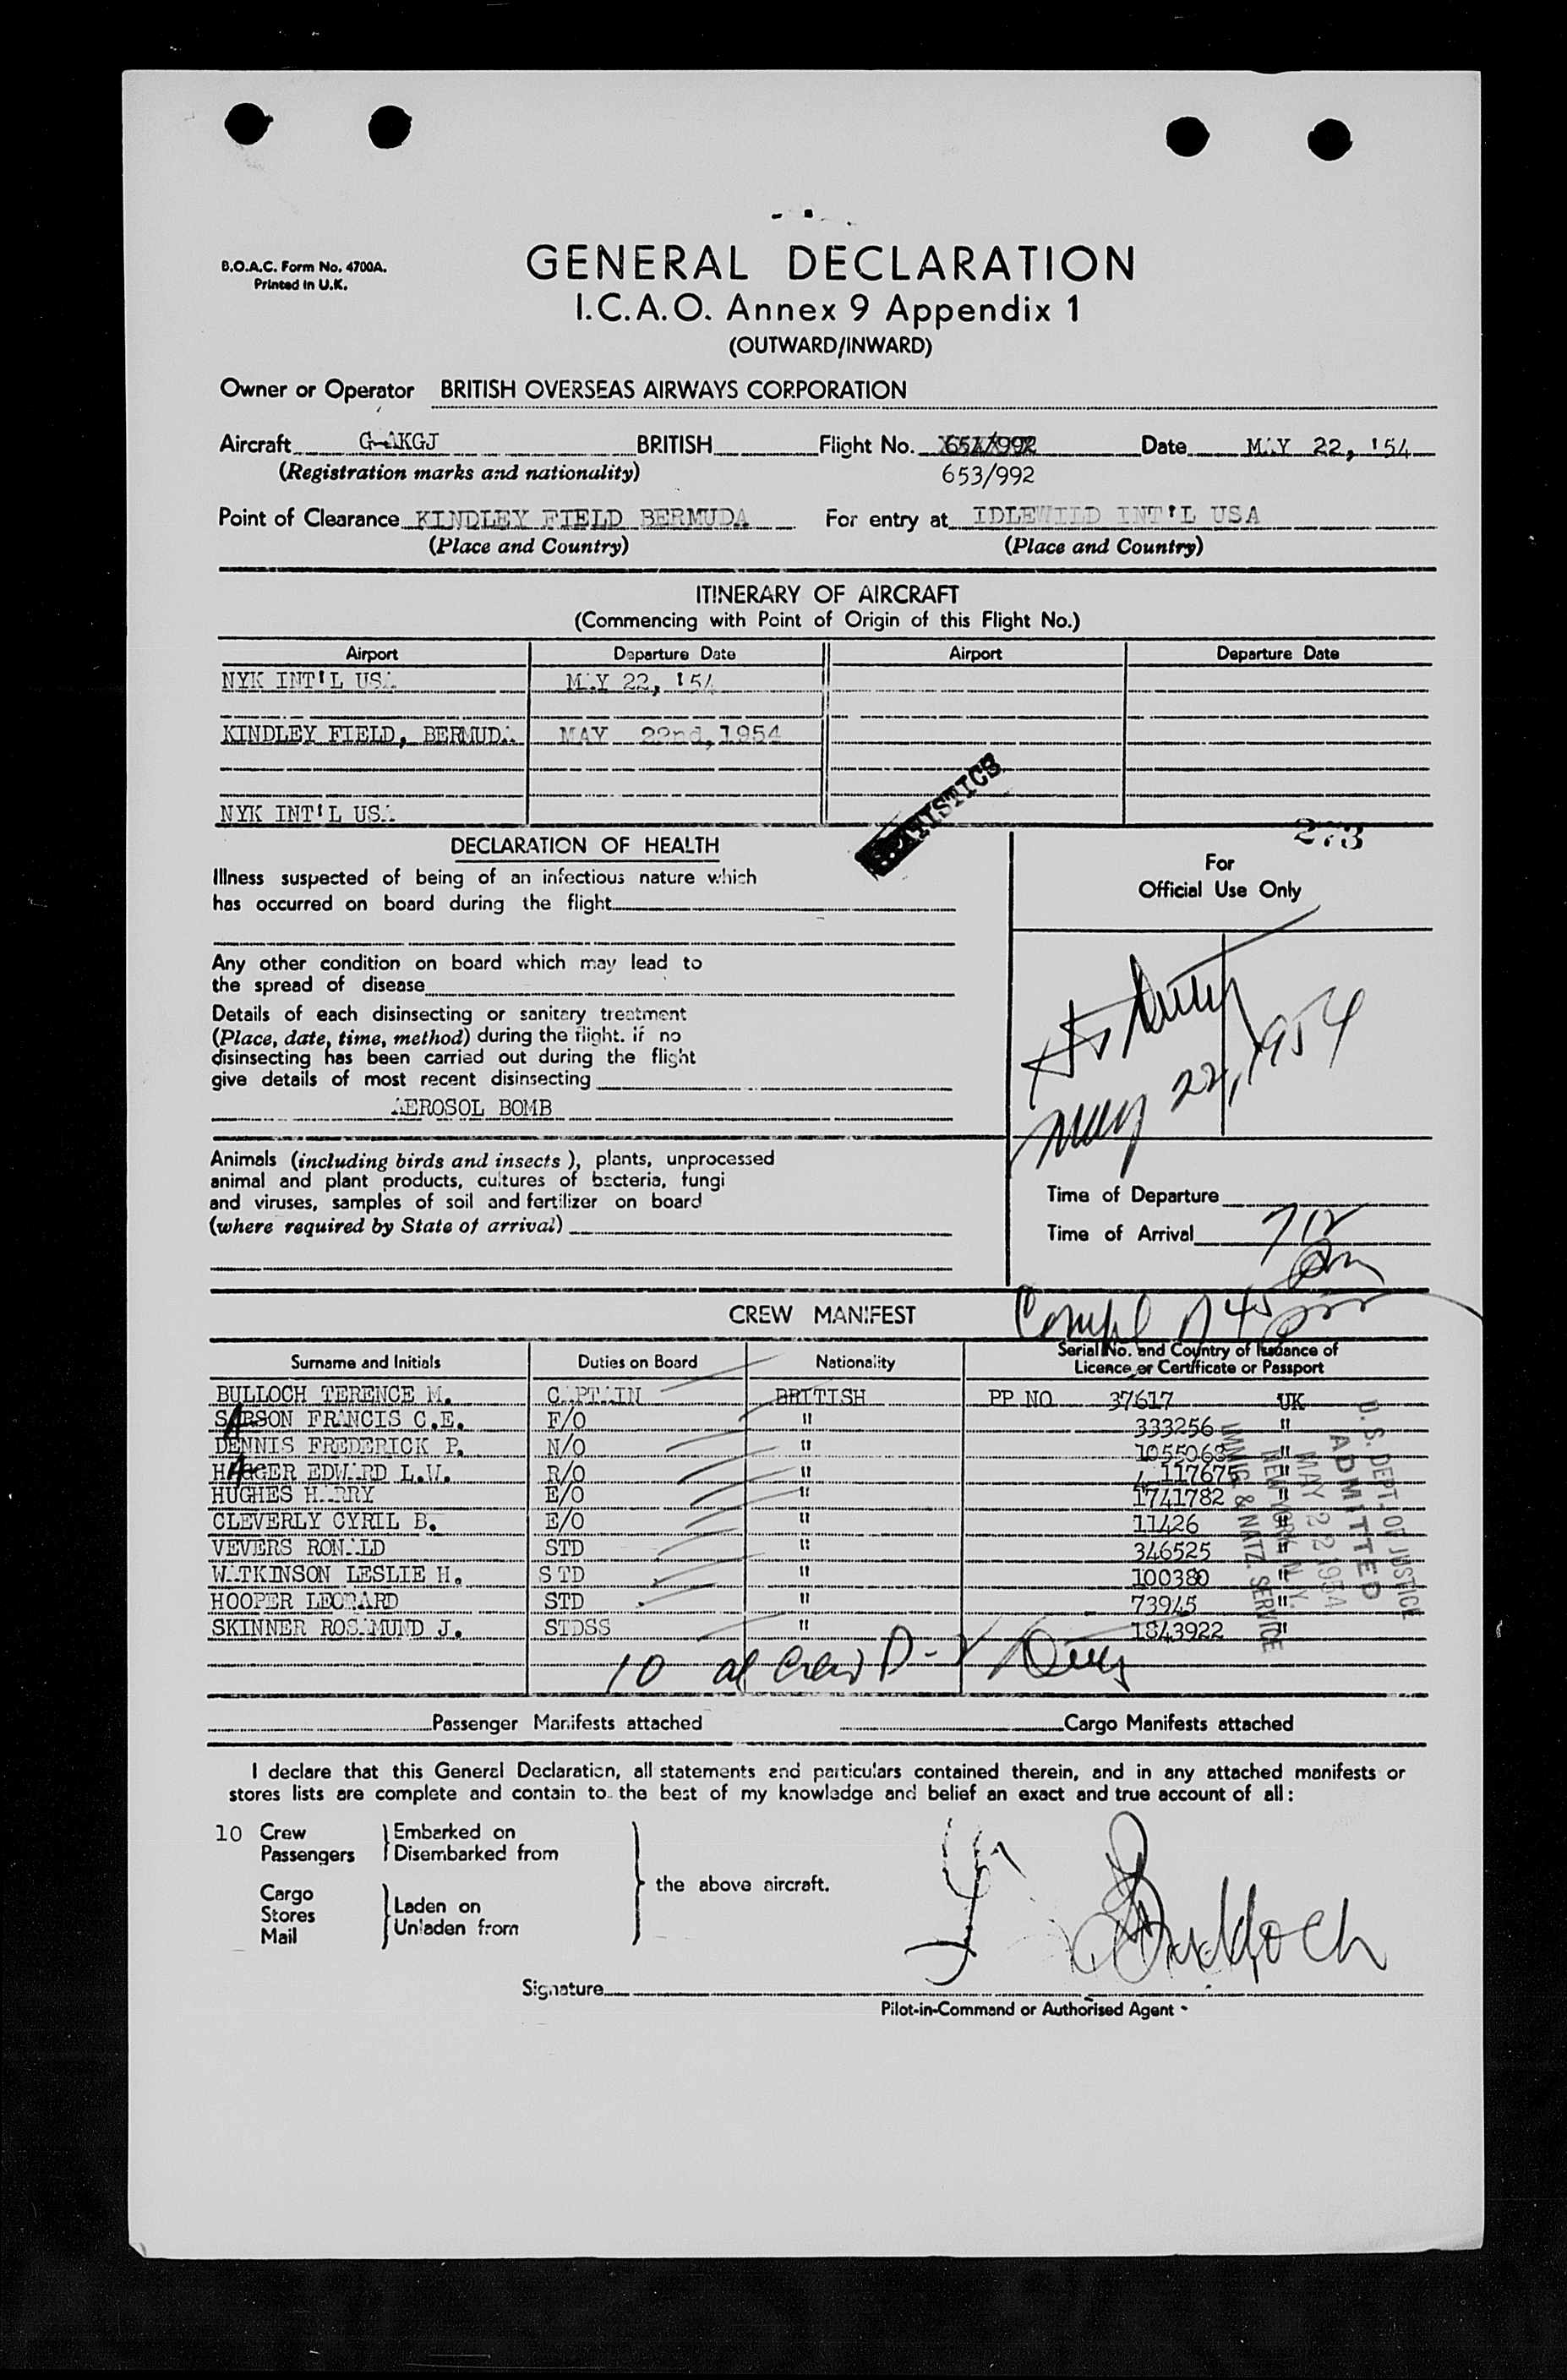 B.O.A.C. Form No. 4700A.
Printed in U.K.
GENERAL DECLARATION
I.C.A.O. Annex 9 Appendix 1
(OUTWARD/INWARD)
Owner or Operator BRITISH OVERSEAS AIRWAYS CORPORATION
Aircraft G-AKGJ BRITISH Flight No. Date MAY 22, '54
(Registration marks and nationality) 653/992
Point of Clearance KINDLEY FIELD BERMUDA For entry at IDLEWILD INT'L USA
(Place and Country) (Place and Country)
ITINERARY OF AIRCRAFT
(Commencing with Point of Origin of this Flight No.)
Airport Departure Date Airport Departure Date
NYK INT'L USA MAY 22, '54
KINDLEY FIELD, BERMUDA MAY 22nd, 1954
NYK INT'L USA
STATISTICS
273
DECLARATION OF HEALTH
For
Official Use Only
Illness suspected of being of an infectious nature which
has occurred on board during the flight
Any other condition on board which may lead to
the spread of disease
Details of each disinsecting or sanitary treatment
(Place, date, time, method) during the flight. If no
disinsecting has been carried out during the flight
give details of most recent disinsecting
AEROSOL BOMB
May 22, 1954
Animals (including birds and insects), plants, unprocessed
animal and plant products, cultures of bacteria, fungi
and viruses, samples of soil and fertilizer on board
(where required by State of arrival)
Time of Departure
Time of Arrival 712
pm
CREW MANIFEST
Compl 745 pm
Surname and Initials Duties on Board Nationality Serial No. and Country of Issuance of
Licence or Certificate or Passport
BULLOCH TERENCE M. CAPTAIN BRITISH PP NO 37617 UK
SARSON FRANCIS C.E. F/O " 333256 "
DENNIS FREDERICK P. N/O " 1055068 "
HAGGER EDWARD L.W. R/O " 117675 "
HUGHES HARRY E/O " 1741782 "
CLEVERLY CYRIL B. E/O " 11426 "
VEVERS RONALD STD " 346525 "
WATKINSON LESLIE H. STD " 100380 "
HOOPER LEONARD STD " 73945 "
SKINNER ROSAMUND J. STDSS " 1843922 "
U. S. DEPT. OF JUSTICE
ADMITTED
MAY 22 1954
NEW YORK, N.Y.
IMMIG. & NATZ. SERVICE
10 al Crew D-
Passenger Manifests attached Cargo Manifests attached
I declare that this General Declaration, all statements and particulars contained therein, and in any attached manifests or
stores lists are complete and contain to the best of my knowledge and belief an exact and true account of all:
10 Crew Embarked on
Passengers Disembarked from
the above aircraft.
Cargo
Stores Laden on
Mail Unladen from
Bulloch
Signature
Pilot-in-Command or Authorised Agent